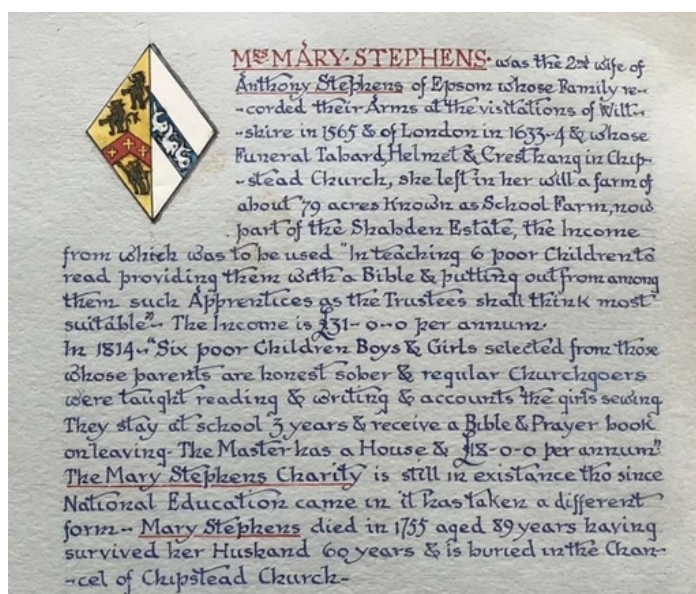 MRS MARY·STEPHENS· was the 2nd wife of
Anthony Stephens of Epsom whose Family re-
-corded their Arms at the visitations of Wilt-
-shire in 1565 & of London in 1633-4 & whose
Funeral Tabard, Helmet & Crest hang in Chip-
-stead Church, she left in her will a farm of
about 79 acres Known as School Farm, now
part of the Shabden Estate, the Income
from which was to be used "In teaching 6 poor Children to
read providing them with a Bible & putting out from among
them such Apprentices as the Trustees shall think most
suitable"- The Income is £31-0-0 per annum.
In 1814-"Six poor Children Boys & Girls selected from those
whose parents are honest sober & regular Churchgoers
were taught reading & writing & accounts the girls sewing
They stay at school 3 years & receive a Bible & Prayer book
on leaving- The Master has a House & £18-0-0 per annum"
The Mary Stephens Charity is still in existance tho since
National Education came in it has taken a different
form- Mary Stephens died in 1755 aged 89 years having
survived her Husband 60 years & is buried in the Chan-
-cel of Chipstead Church-